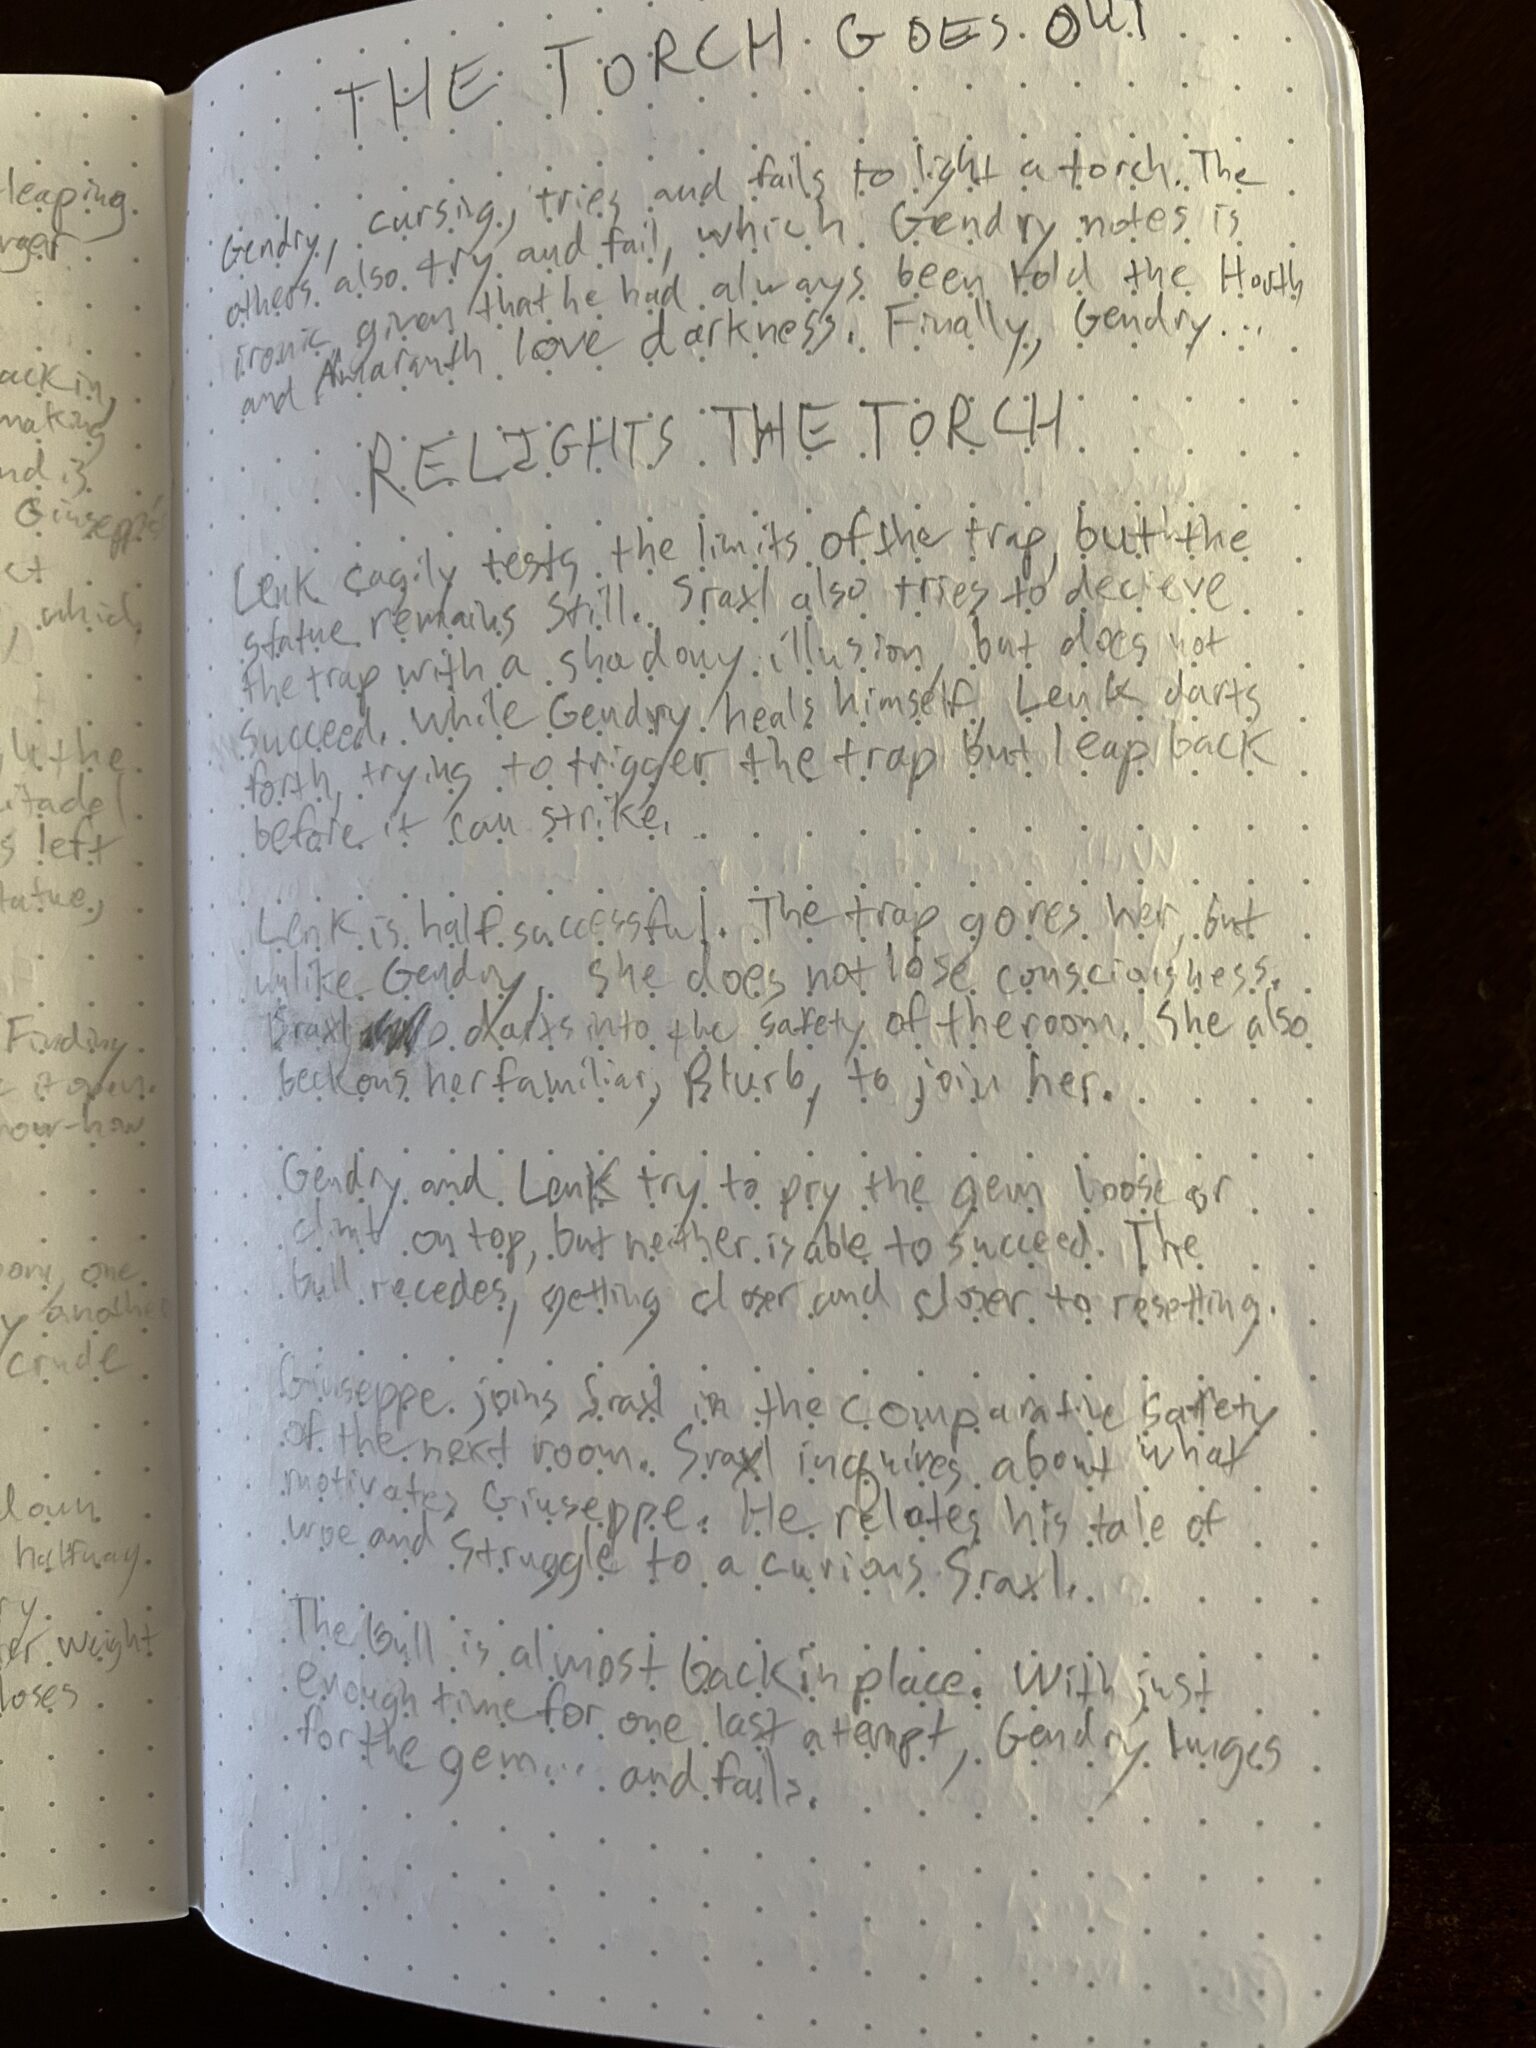 leaping
THE TORCH GOES OUT
Gendry, cursing, tries and fails to light a torch. The
others also try and fail, which Gendry notes is
ironic given that he had always been told the
and Amaranth love darkness. Finally, Gendry...
RELIGHTS THE TORCH
Lenk cagily tests the limits of the trap, but the
statue remains still. Sraxl also tries to decieve
the trap with a shadowy illusion, but does not
succeed. While Gendry heals himself, Lenk darts
forth, trying to trigger the trap but leap back
before it can strike.
Lenk is half successful. The trap gores her, but
unlike Gendry, she does not lose consciousness.
Sraxl darts into the safety of the room. She also
beckons her familiar, Blurb, to join her.
Gendry and Lenk try to pry the gem loose or
climb on top, but neither is able to succeed. The
bull recedes, getting closer and closer to resetting.
Giuseppe joins Sraxl in the comparative safety
of the next room. Sraxl inquires about what
motivates Giuseppe. He relates his tale of
woe and struggle to a curious Sraxl.
The bull is almost back in place. With just
enough time for one last attempt, Gendry lunges
for the gem... and fails.
making
Giuseppe's
the
left
Finding
one
another
crude
halfway.
weight